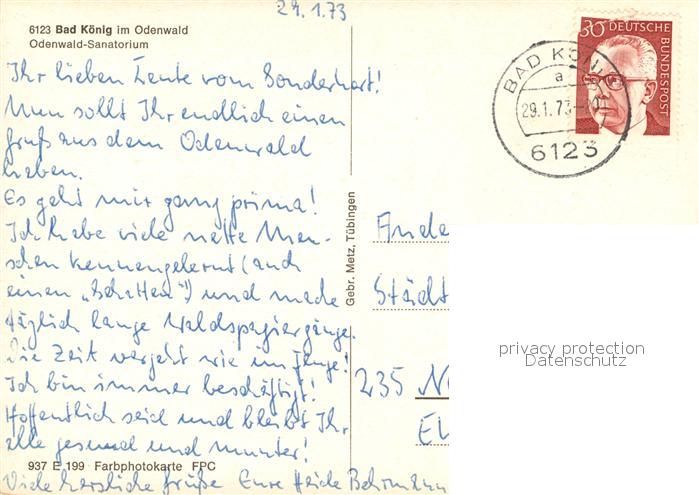 29.1.73
6123 Bad König im Odenwald
Odenwald-Sanatorium
Ihr lieben Leute vom Sonderhart!
Nun sollt Ihr endlich einen
Gruß aus dem Odenwald
haben.
Es geht mir ganz prima!
Ich habe viele nette Men-
schen kennengelernt (auch
einen „Schatten") und mache
täglich lange Waldspaziergänge.
Die Zeit vergeht wie im Fluge!
Ich bin immer beschäftigt!
Hoffentlich seid und bleibt Ihr
alle gesund und munter!
937 E 199 Farbphotokarte FPC
Viele herzliche Grüße Eure Heide
Gebr. Metz, Tübingen
30
DEUTSCHE BUNDESPOST
BAD KÖNIG
a
29.1.73
6123
Ande
Städt
235 N
privacy protection
Datenschutz